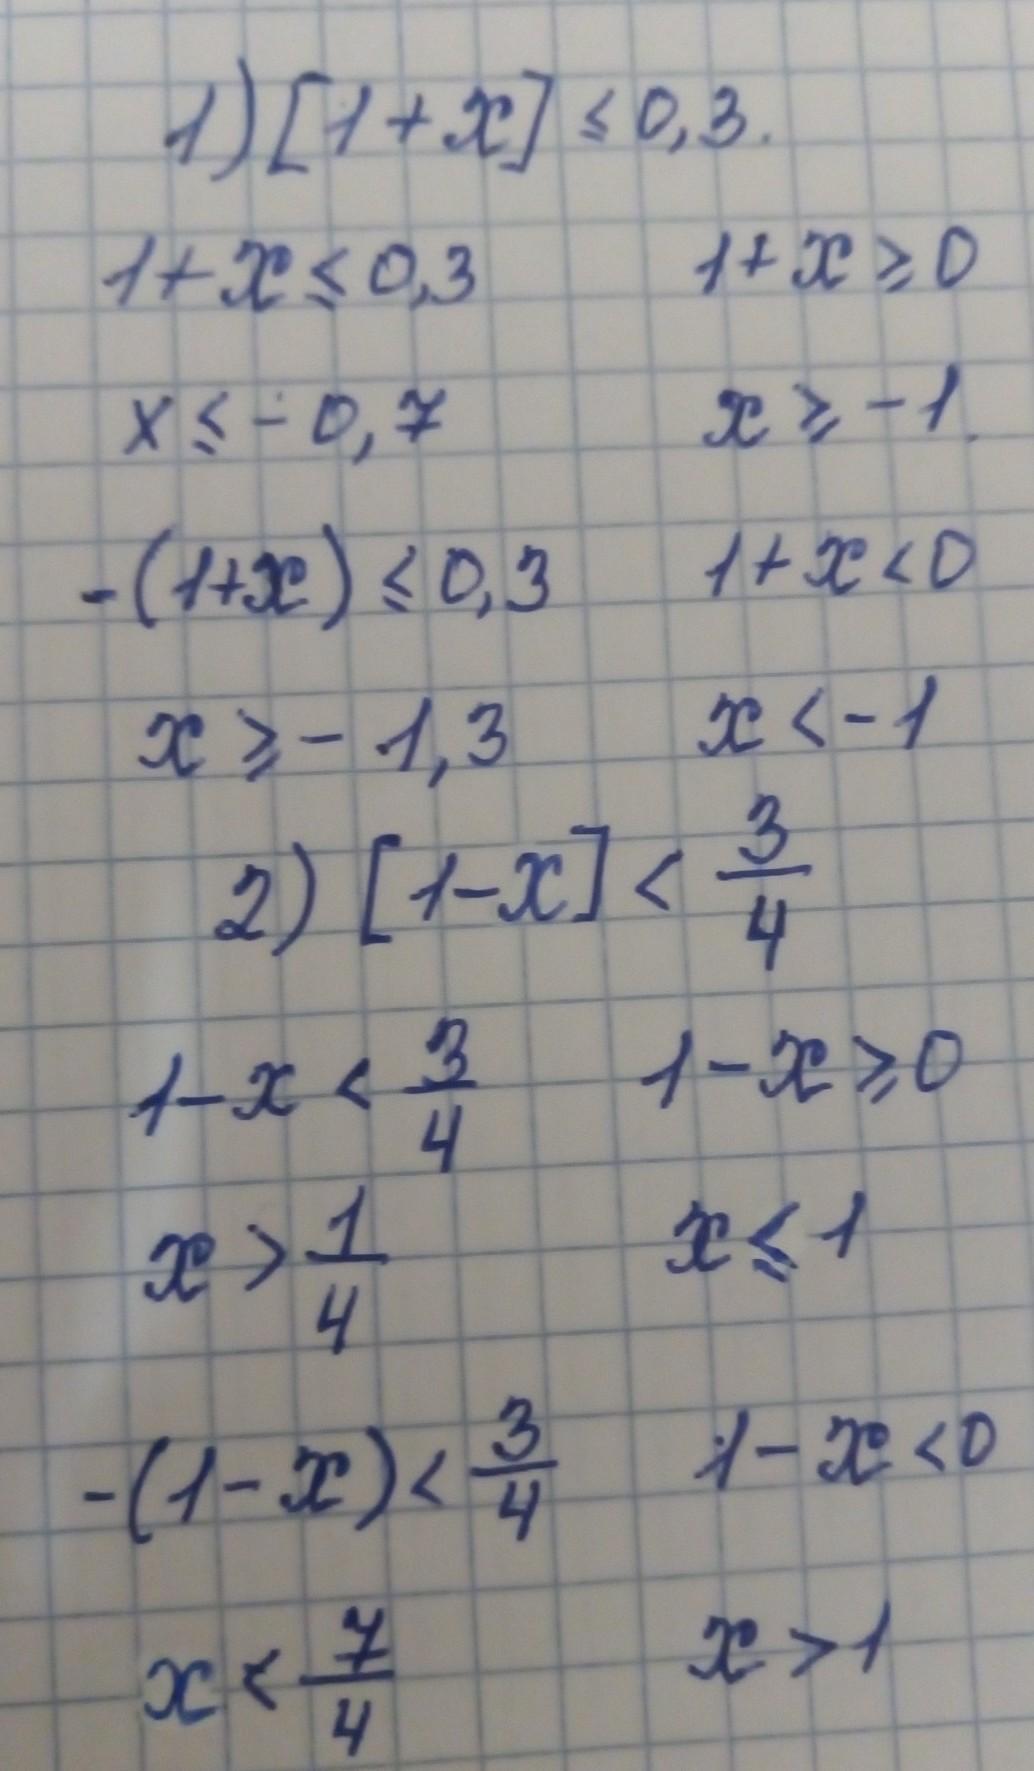 1) [1+x] ≤ 0,3.
1+x ≤ 0,3 1+x ≥ 0
x ≤ -0,7 x ≥ -1.
-(1+x) ≤ 0,3 1+x < 0
x ≥ -1,3 x < -1
2) [1-x] < 3/4
1-x < 3/4 1-x ≥ 0
x > 1/4 x ≤ 1
-(1-x) < 3/4 1-x < 0
x < 7/4 x > 1